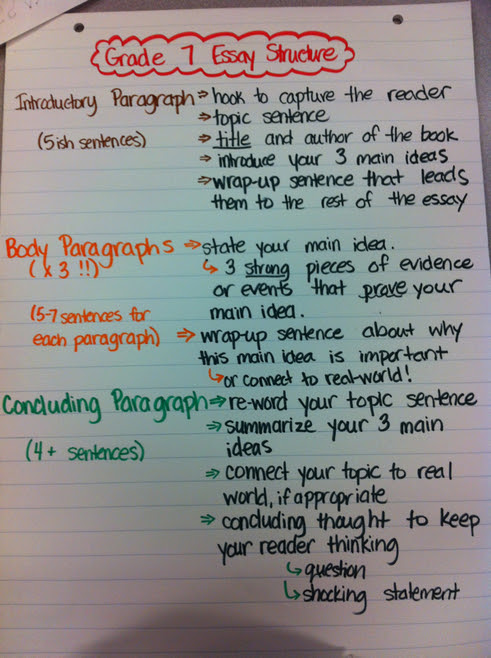 Grade 7 Essay Structure
Introductory Paragraph ⇒ hook to capture the reader
(5ish sentences) ⇒ topic sentence
⇒ title and author of the book
⇒ introduce your 3 main ideas
⇒ wrap-up sentence that leads
them to the rest of the essay
Body Paragraphs ⇒ state your main idea.
(x 3 !!) ↳ 3 strong pieces of evidence
or events that prove your
main idea.
(5-7 sentences for
each paragraph) ⇒ wrap-up sentence about why
this main idea is important
↳ or connect to real-world!
Concluding Paragraph ⇒ re-word your topic sentence
(4+ sentences) ⇒ summarize your 3 main
ideas
⇒ connect your topic to real
world, if appropriate
⇒ concluding thought to keep
your reader thinking
↳ question
↳ shocking statement